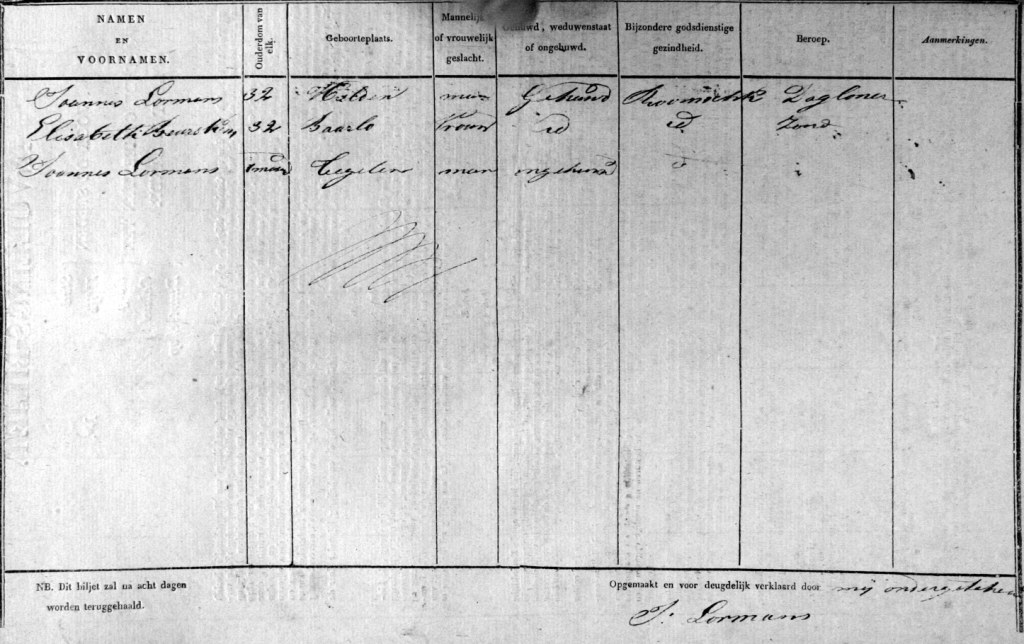 NAMEN EN VOORNAMEN. Ouderdom van elk. Geboorteplaats. Mannelijk of vrouwelijk geslacht. Gehuwd, weduwenstaat of ongehuwd. Bijzondere godsdienstige gezindheid. Beroep. Aanmerkingen.
Joannes Lormans 32 Helden man Gehuwd Roomschk Dagloner
Elisabeth 32 Baarlo Vrouw id id
Joannes Lormans 1 Tegelen man ongehuwd
NB. Dit biljet zal na acht dagen worden teruggehaald.
Opgemaakt en voor deugdelijk verklaard door mij ondergeteken
J. Lormans